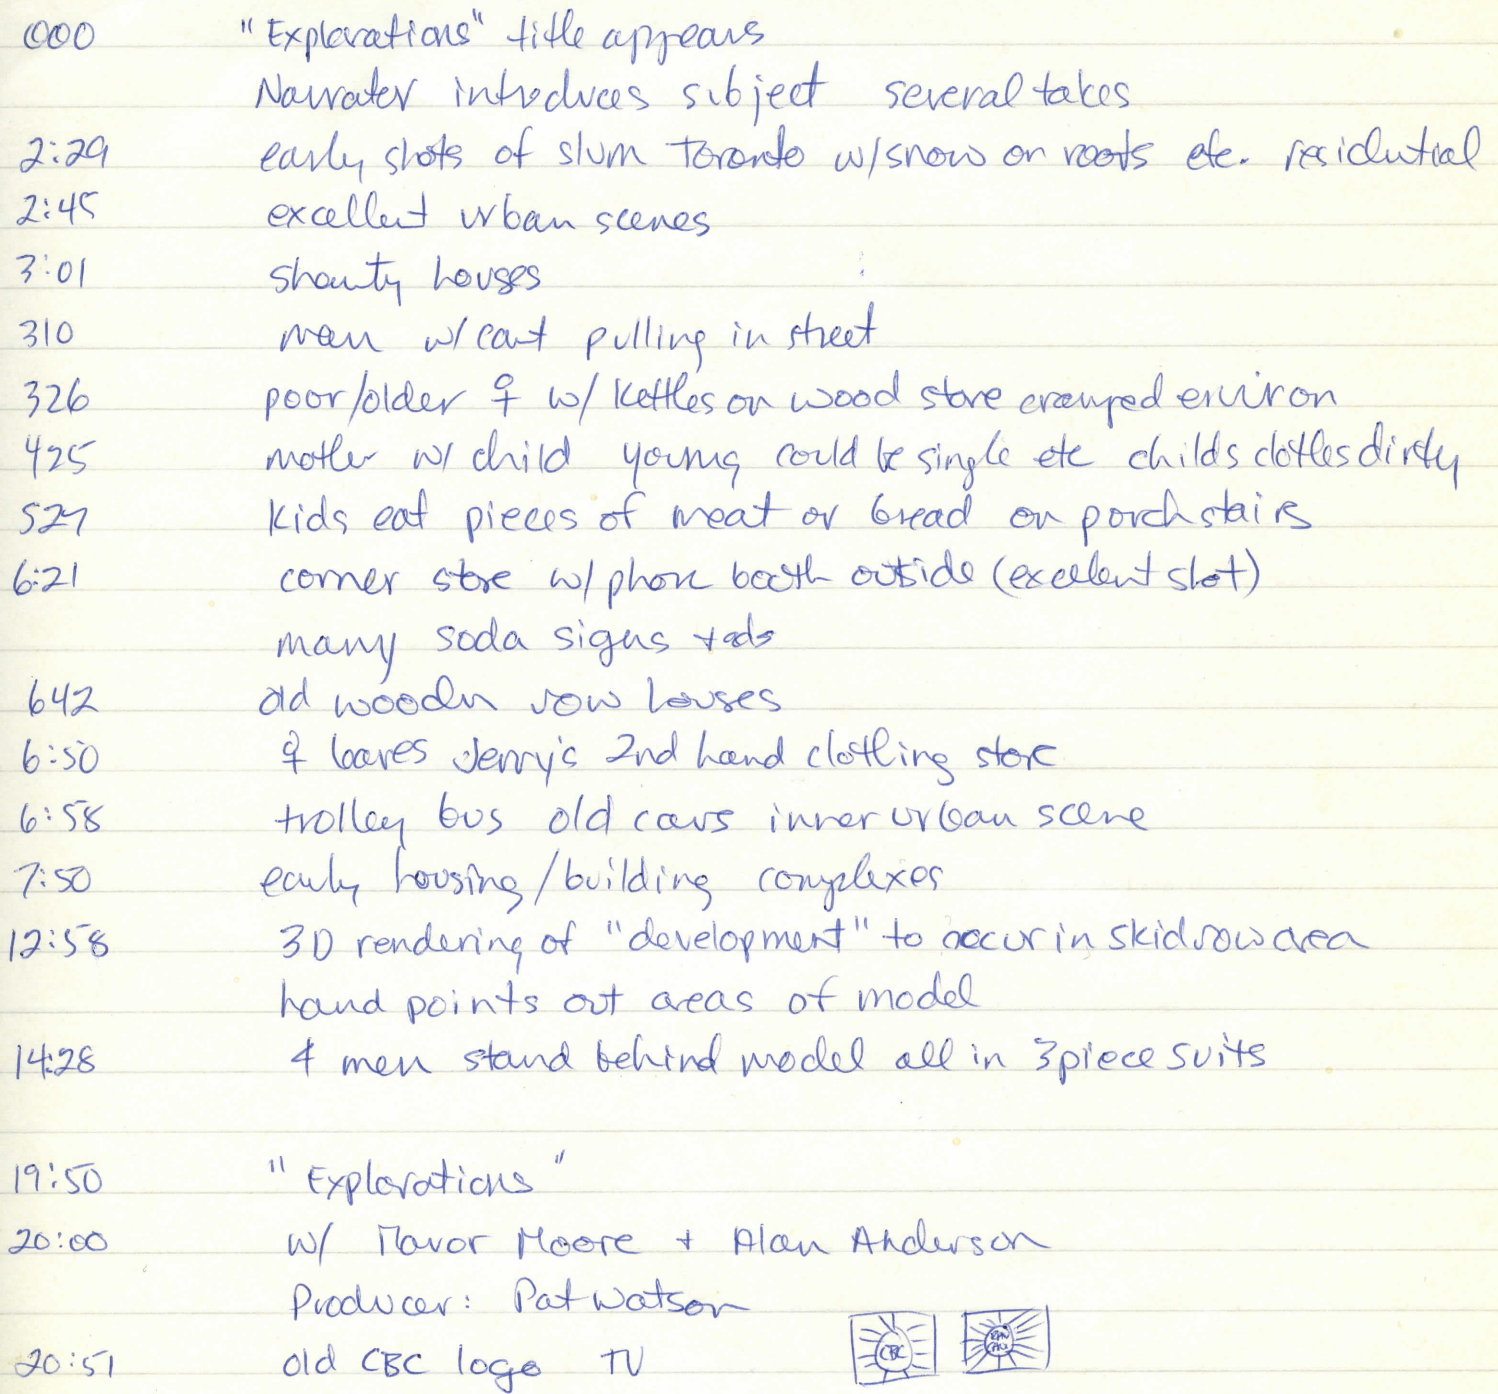 000 "Explorations" title appears
Narrater introduces subject several takes
2:29 early shots of slum Toronto w/snow on roofs etc. residutial
2:45 excellent urban scenes
3:01 shanty houses
310 man w/cart pulling in street
326 poor/older ♀ w/ kettles on wood stove cramped environ
425 mother w/ child young could be single etc childs clothes dirty
527 kids eat pieces of meat or bread on porch stairs
6:21 corner store w/phone booth outside (excellent shot)
many soda signs + ads
642 old wooden row houses
6:50 ♀ leaves Jerry's 2nd hand clothing store
6:58 trolley bus old cars inner urban scene
7:50 early housing/building complexes
12:58 3D rendering of "development" to occur in skidrow area
hand points out areas of model
14:28 4 men stand behind model all in 3piece suits
19:50 "Explorations"
20:00 w/ Mavor Moore + Alan Anderson
Producer: Pat Watson
20:51 old CBC logo TV CBC